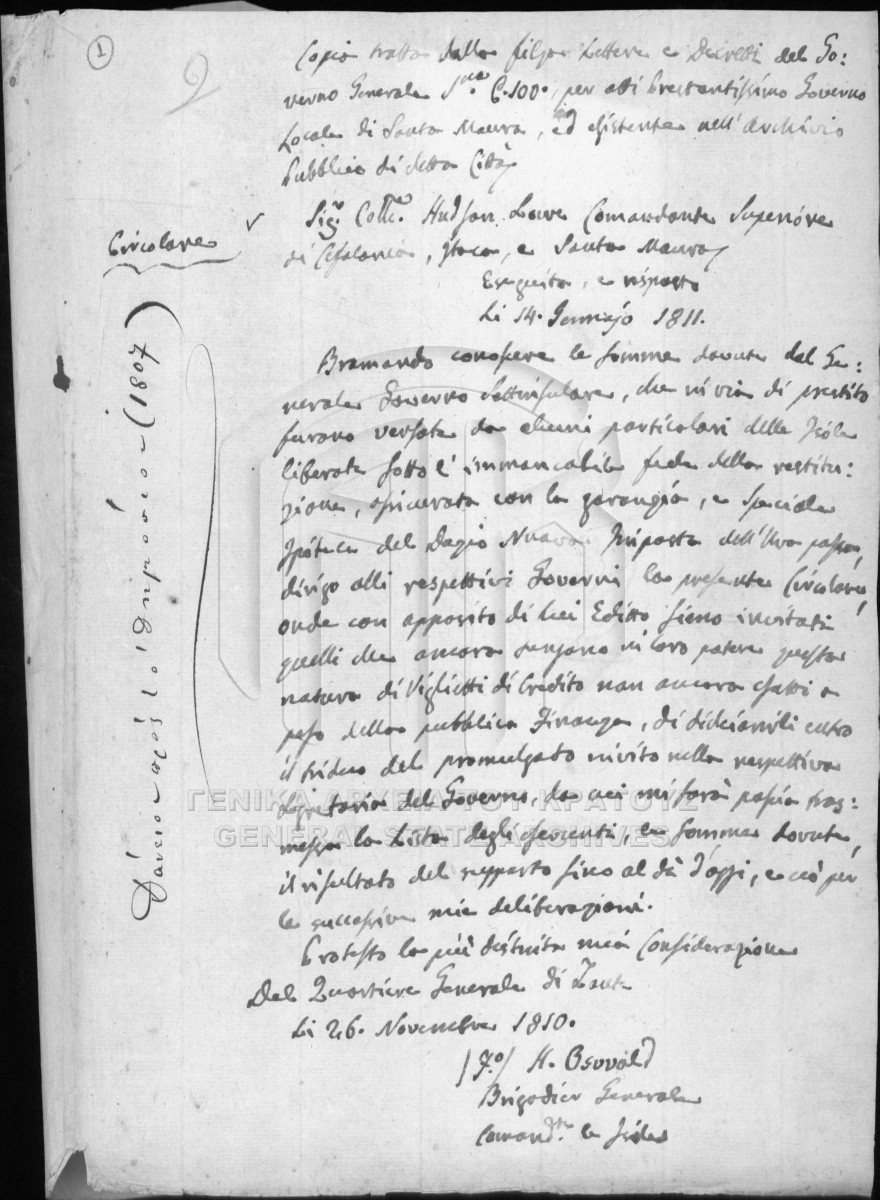 1
Copia tratta dalla filza Lettere e Decretti del Go:
verno Generale Sna. C.100. per atti Prestantissimo Governo
Locale di Santa Maura, ed esistente nell'Archivio
Pubblico di detta Città
Circolare
Sigr. Coll. Hudson Lowe Comandante Superiore
di Cefalonia, Itaca, e Santa Maura
Eseguita, e risposto
Li 14. Gennajo 1811.
Δάνειο πρός το δημόσιον (1807)
Bramando conoscere le somme dovute dal Ge:
nerale Governo Settinsulare, che in via di prestito
furono versate da alcuni particolari delle Isole
liberate sotto l'immancabile fede della restitu:
zione, assicurata con la garanzia, e speciale
Ipoteca del Dazio Nuova Imposta dell'Uva passa,
dirigo alli respettivi Governi la presente Circolare,
onde con apposito di lui Editto sieno invitati
quelli che ancora tengono in loro potere questa
natura di Viglietti di Credito non ancora esatti a
peso della pubblica Finanza, di dichiararli entro
il triduo del promulgato invito nella respettiva
Segretaria del Governo, da cui mi sarà poscia tras:
messa la Lista degli esoventi, le somme dovute,
il risultato del rapporto sino al dì d'oggi, e ciò per
le successive mie deliberazioni.
Protesto la più distinta mia Considerazione
Dal Quartiere Generale di Zante
Li 26. Novembre 1810.
/Fo/ H. Osvvald
Brigadier Generale
Comandte le Isole
ΓΕΝΙΚΑ ΑΡΧΕΙΑ ΤΟΥ ΚΡΑΤΟΥΣ
GENERAL STATE ARCHIVES